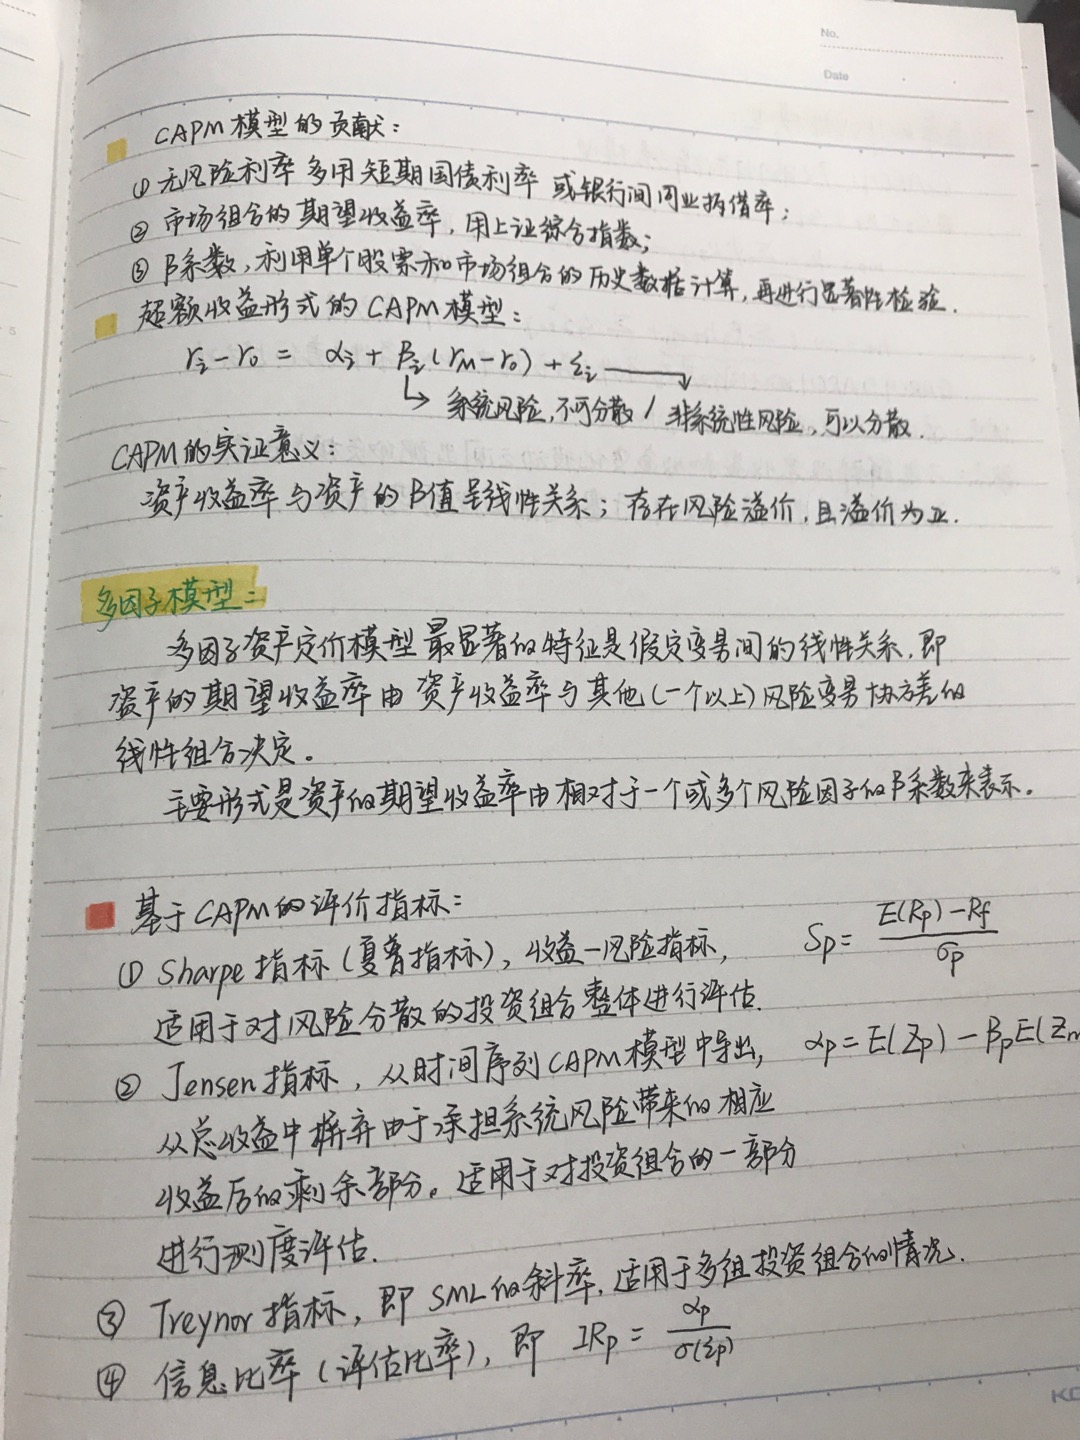 No.
Date
CAPM模型的贡献：
① 无风险利率多用短期国债利率或银行间同业拆借率；
② 市场组合的期望收益率，用上证综合指数；
③ β系数，利用单个股票和市场组合的历史数据计算，再进行显著性检验.
超额收益形式的CAPM模型：
ri－r0 = αi + βi(rM－r0) + εi
系统风险，不可分散 / 非系统性风险，可以分散.
CAPM的实证意义：
资产收益率与资产的β值呈线性关系；存在风险溢价，且溢价为正.
多因子模型：
多因子资产定价模型最显著的特征是假定变量间的线性关系，即
资产的期望收益率由资产收益率与其他(一个以上)风险变量协方差的
线性组合决定。
主要形式是资产的期望收益率由相对于一个或多个风险因子的β系数来表示。
基于CAPM的评价指标：
① Sharpe指标（夏普指标），收益—风险指标， Sp = (E(Rp)－Rf) / σp
适用于对风险分散的投资组合整体进行评估.
② Jensen指标，从时间序列CAPM模型中导出， αp = E(Zp)－βpE(Zm
从总收益中摒弃由于承担系统风险带来的相应
收益后的剩余部分。适用于对投资组合的一部分
进行测度评估.
③ Treynor指标，即SML的斜率，适用于多组投资组合的情况.
④ 信息比率（评估比率），即 IRp = αp / σ(εp)